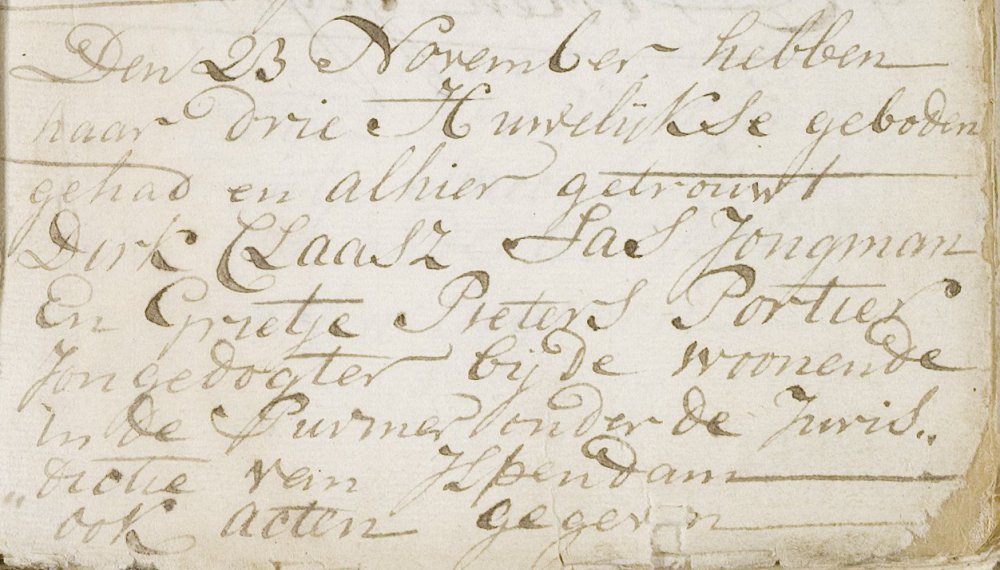 Den 23 November hebben
haar drie Huwelijkse geboden
gehad en alhier getrouwt
Dirk Claasz Sas Jongman
En Grietje Pieters Portier
Jongedogter bijde woonende
in de Purmer onder de Juris„
„dictie van Ilpendam
ook acten gegeven